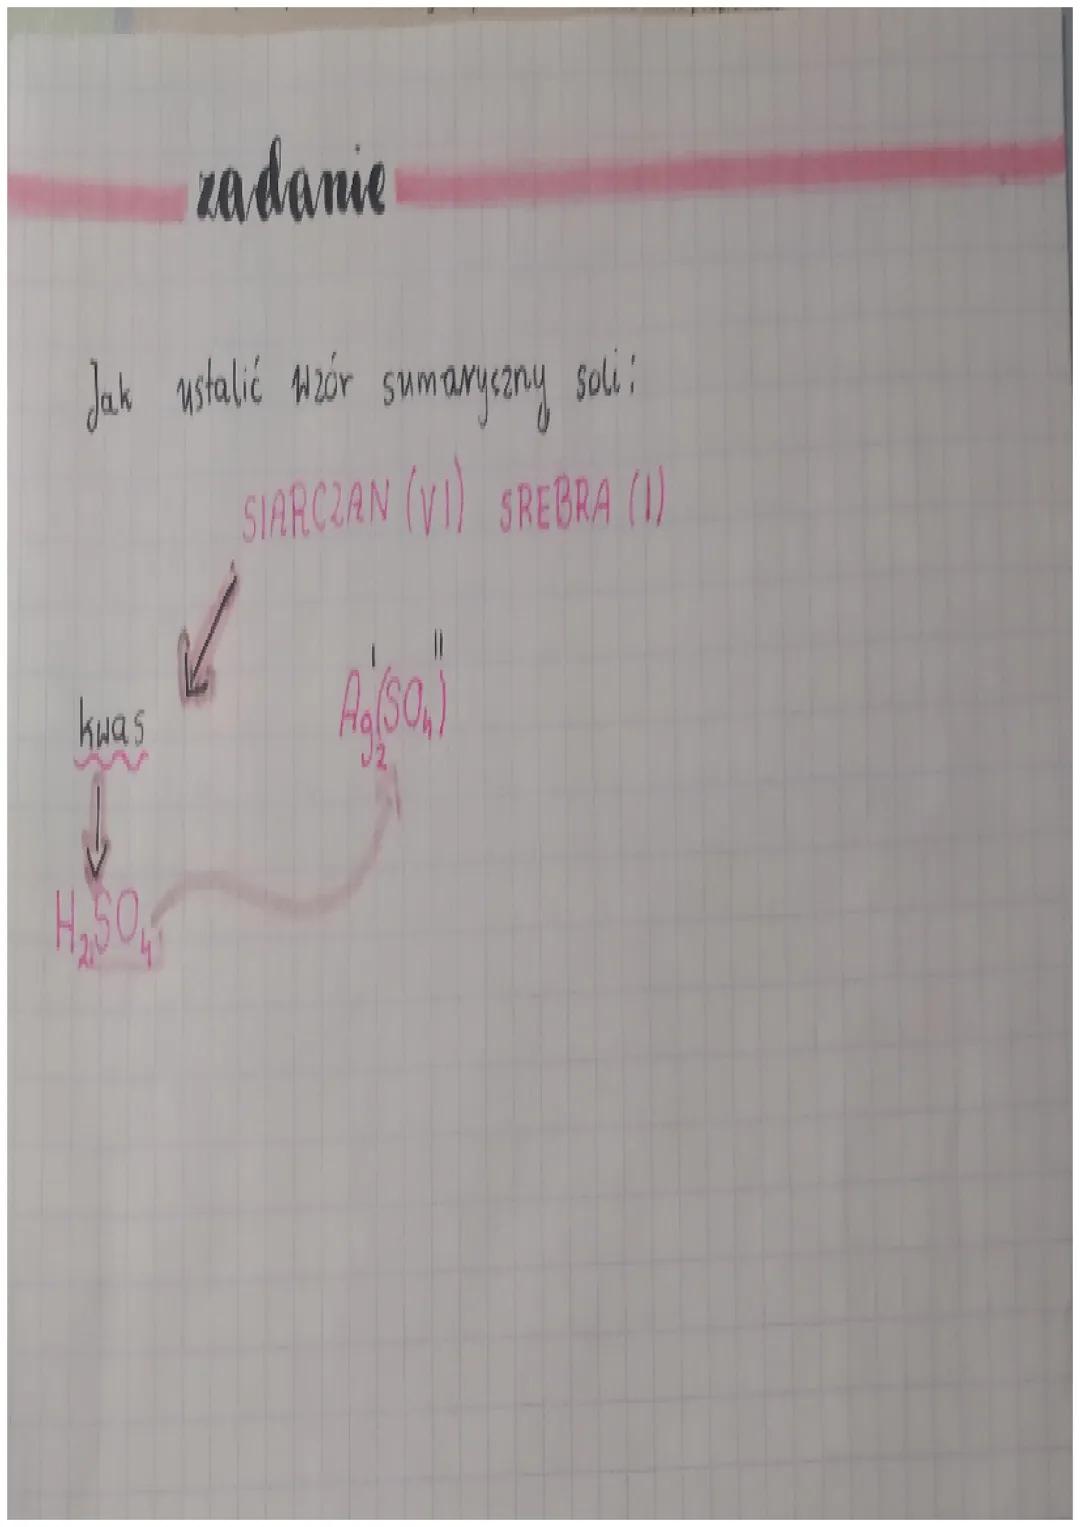 zadanie
Jak ustalić wzór sumaryczny soli:
SIARCZAN (VI) SREBRA (I)
I II
kwas Ag₂(SO₄)
H₂SO₄